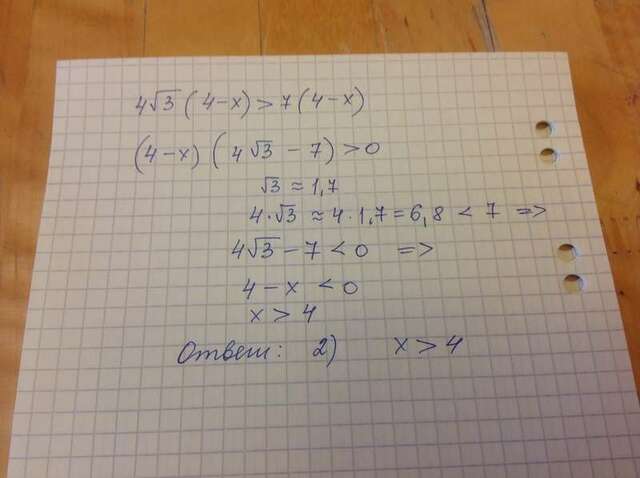 4√3 (4-x) > 7 (4-x)
(4-x) (4√3 - 7) > 0
√3 ≈ 1,7
4·√3 ≈ 4·1,7 = 6,8 < 7 =>
4√3 - 7 < 0 =>
4 - x < 0
x > 4
Ответ: 2) x > 4